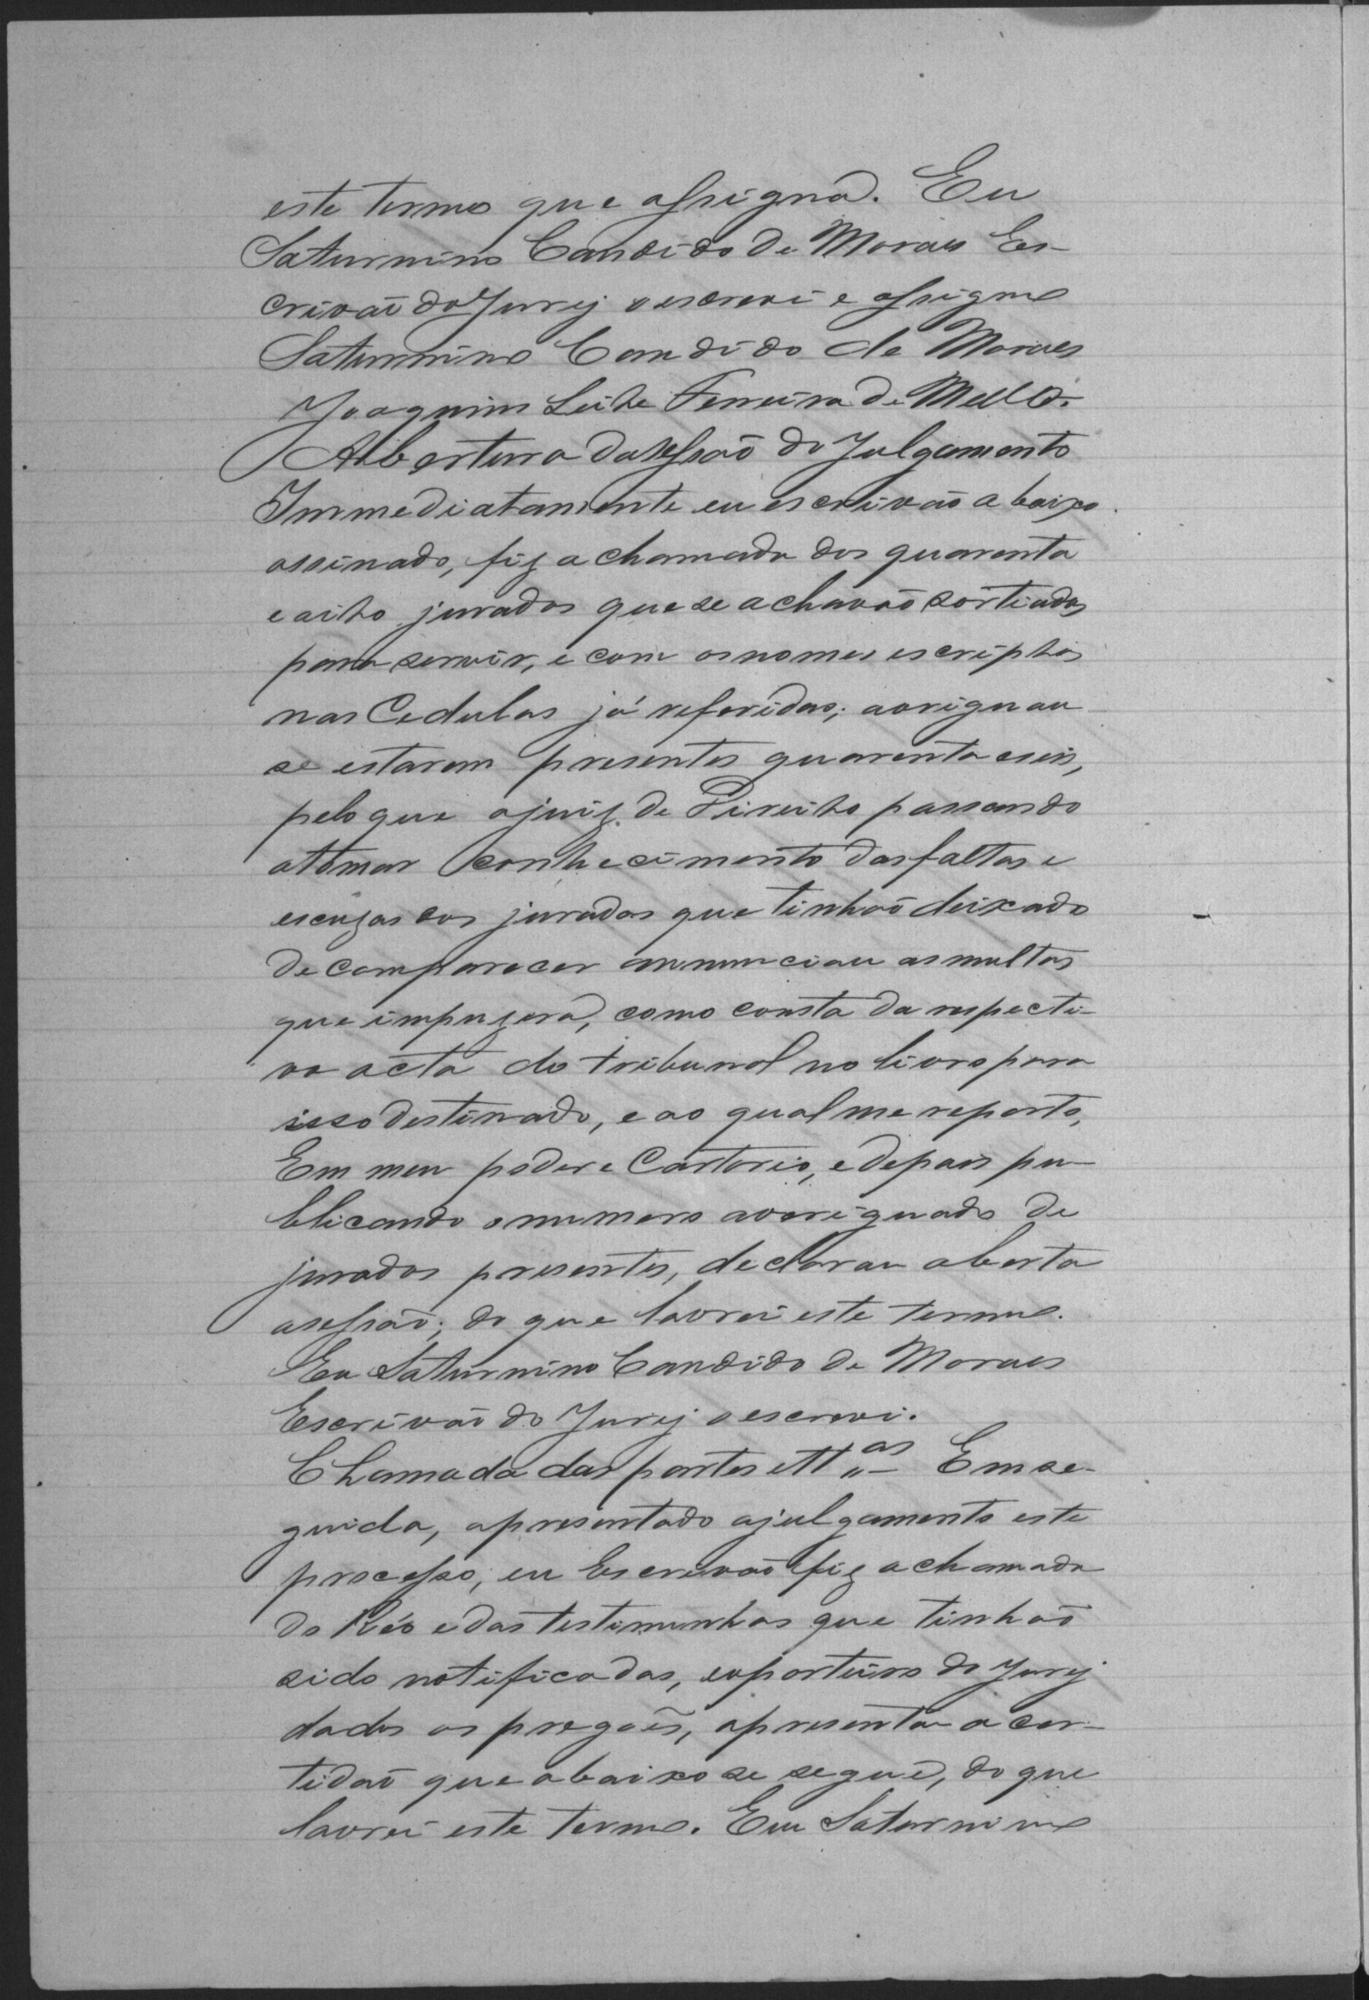 este termo que assigna. Eu
Saturnino Candido de Moraes Es-
crivaõ do Jury o escrevi e assigno
Saturnino Candido de Moraes
Joaquim Leite Ferreira de Mello.
Abertura da sessaõ do Julgamento
Immediatamente eu escrivaõ abaixo
assinado, fiz a chamada dos quarenta
e oito jurados que se achavaõ sorteados
para servir, e com os nomes escriptos
nas Cedulas já referidas; averiguou
se estarem presentes quarenta e seis,
pelo que o juiz de Direito passando
atomar conhecimento das faltas e
escuzas dos jurados que tinhaõ deixado
de comparecer annunciou as multas
que impuzera, como consta da respecti-
va acta do tribunal no livro para
isso destinado, e ao qual me reporto,
Em meu poder e Cartorio, e depois pu-
blicando o numero averiguado de
jurados presentes, declarou aberta
asessaõ; do que lavrei este termo.
Eu Saturnino Candido de Moraes
Escrivaõ do Jury o escrevi.
Chamada das partes e Ttas Em se-
guida, apresentado ajulgamento este
processo, eu Escrivaõ fiz a chamada
do Réo e das testimunhas que tinhaõ
sido notificadas, e o porteiro do Jury
dados os pregoẽs, apresentou a cer-
tidaõ que abaixo se segue, do que
lavrei este termo. Eu Saturnino